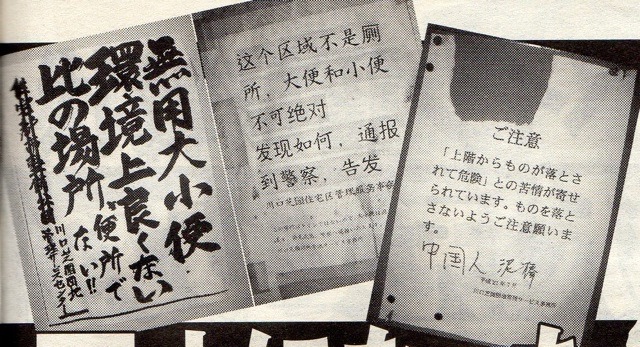 無用大小便
環境上良くない
此の場所便所で
ない!!
川口芝園団地
这个区域不是厕
所，大便和小便
不可绝对
发现如何，通报
到警察，告发
川口芝园住宅区管理服务事务
ご注意
「上階からものが落とさ
れて危険」との苦情が寄せ
られています。ものを落と
さないようご注意願いま
す。
中国人 泥棒
川口芝園団地管理サービス事務所